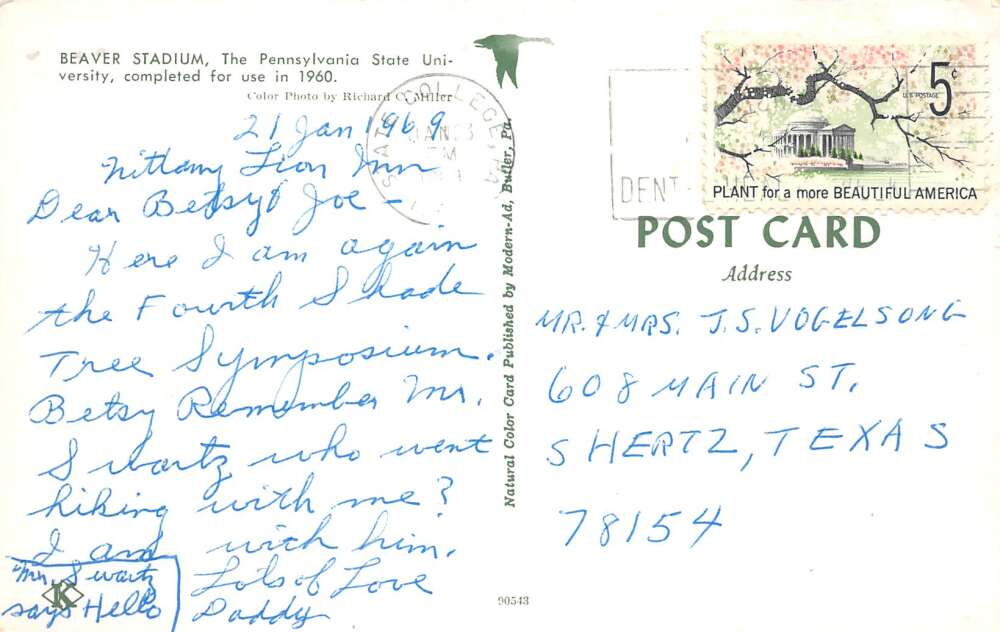 BEAVER STADIUM, The Pennsylvania State Uni-
versity, completed for use in 1960.
Color Photo by Richard C. Miller
21 Jan 1969
Nittany Lion Inn
Dear Betsy & Joe -
Here I am again
the Fourth Shade
Tree Symposium.
Betsy Remember Mr.
Swartz who went
hiking with me?
I am with him.
Lots of Love
Daddy
"Mr. Swartz
says Hello
K
Natural Color Card Published by Modern-Ad, Butler, Pa.
90543
STATE COLLEGE, PA
JAN 23
PM
5¢
U.S. POSTAGE
PLANT for a more BEAUTIFUL AMERICA
POST CARD
Address
MR. & MRS. J.S. VOGELSONG
608 MAIN ST.
SHERTZ, TEXAS
78154